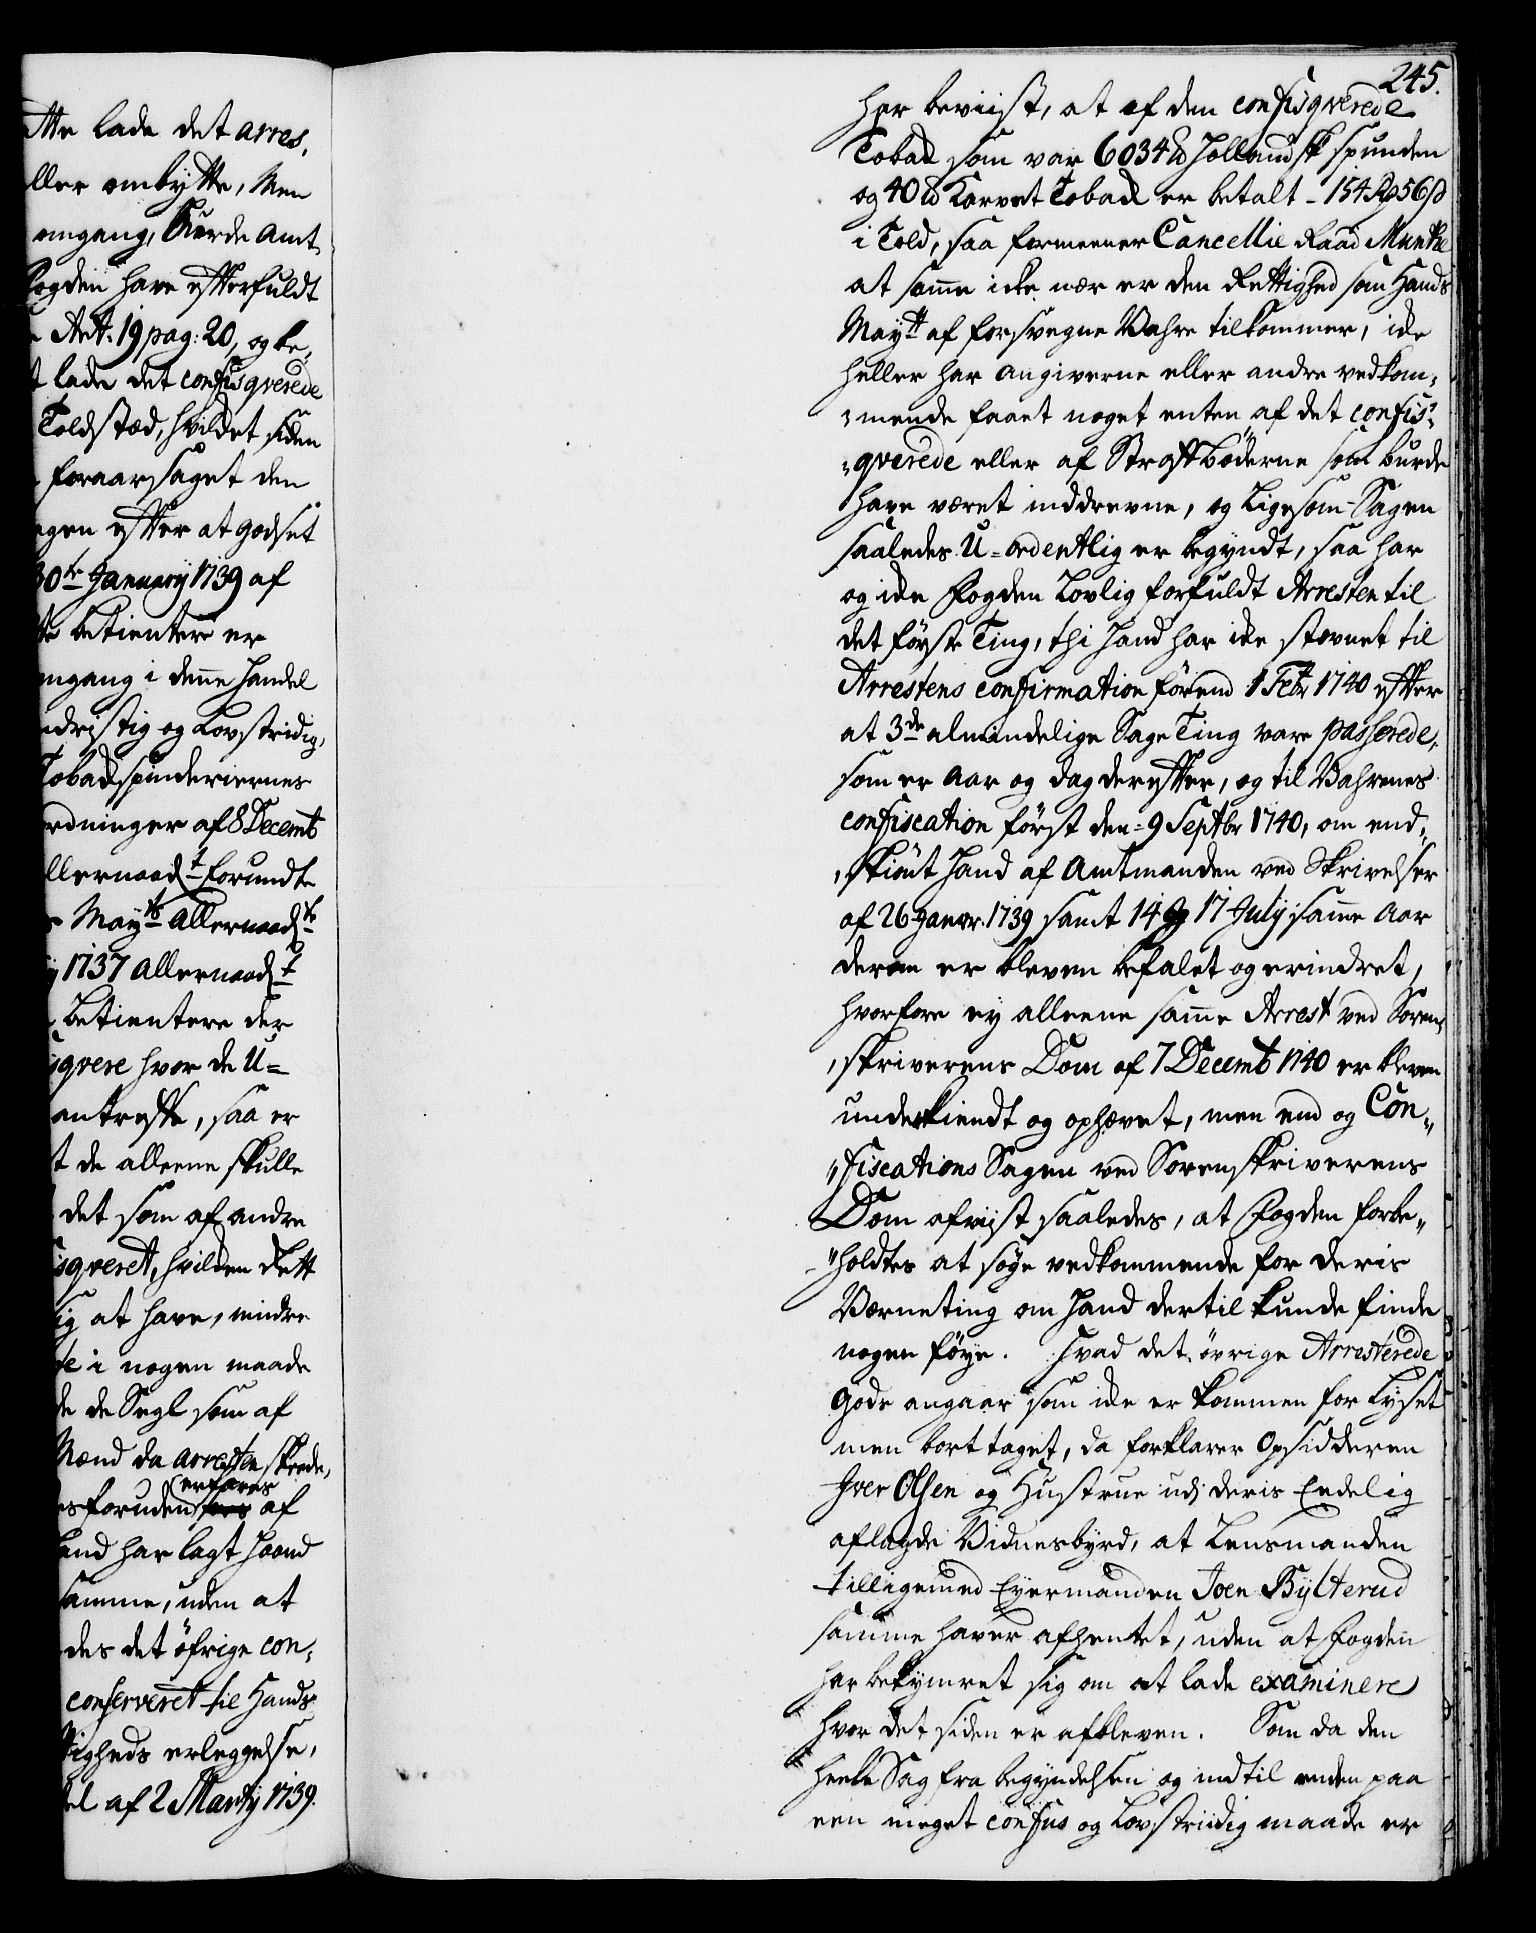 tte lade det arres,
ller ombytte, Men
omgang, Burde Amt,
Fogden have efterfuldt
Art: 19 pag: 20, og be,
t lade det confisqverede
Toldstæd, hvilket siden
foraarsaget den
agen efter at godset
30te January 1739 af
betientere er
omgang i denne handel
dristig og Lovstridig,
Tobakspinderiernes
rdninger af 8 Decembr
llernaadt forundte
Maytts Allernaadste
1737 allernaadt
betientere der
qvere hvor de U=
antreffe, saa er
t de alleene skulle
det som af andre
sqveret, hvilken Rett
sig at have, mindre
te i nogen maade
de de Segl som af
Mænd da arresten skeede,
erfares
esforuden af
and har lagt Haand
samme, uden at
des det öfrige con,
conserveret til Hands
tigheds erleggelse,
el af 2 Marty 1739.
245.
har beviist, at af den confisqverede
Tobak som var 6034 lb Hollandsk spunden
og 40 lb Karvet Tobak er betalt - 154 Rd 56 s
i Told, saa formeener Cancellie Raad Munthe
at samme icke nær er den Rettighed som Hands
Maytt af forsvegne Vahre tilkommer, icke
heller har angiverne eller andre vedkom,
,mende faaet noget enten af det confis,
,qverede eller af Straffböderne som burde
have været inddrevne, og Ligesom Sagen
saaledes U=ordentlig er begyndt, saa har
og icke Fogden Lovlig forfuldt Arresten til
det föyste Ting, thi Hand har icke stævnet til
Arrestens confirmation förend 1 Febr 1740 efter
at 3de almindelige Sage Ting vare passerede,
som er Aar og dag derefter, og til Vahrenes
confiscation först den 9 Septbr 1740, om end,
,skiönt Hand af Amtmanden ved Skrivelser
af 26 Janvr. 1739 samt 14 og 17 July samme Aar
derom er bleven befalet og erindret,
hvorfore ey alleene samme Arrest ved Soren,
,skriverens Dom af 7 Decembr 1740 er bleven
underkiendt og ophævet, men end og Con,,
,,fiscations Sagen ved Sorenskriverens
Dom afviist saaledes, at Fogden forbe,,
,,holdtes at söge vedkommende for deris
Værneting om Hand dertil kunde finde
nogen föye. Hvad det övrige Arresterede
Gods angaar som icke er kommen for Lyset
men bort taget, da forklarer Opsidderen
Iver Olsen og Hustrue udi deris Eedelig
aflagde Vidnesbyrd, at Lensmanden
tilligemed Eyermanden Joen Bylterud
samme haver afhentet, uden at Fogden
har bekymret sig om at lade examinere
hvor det siden er afbleven. Som da den
heele Sag fra begyndelsen og indtil enden paa
een meget confus og Lovstriidig maade er